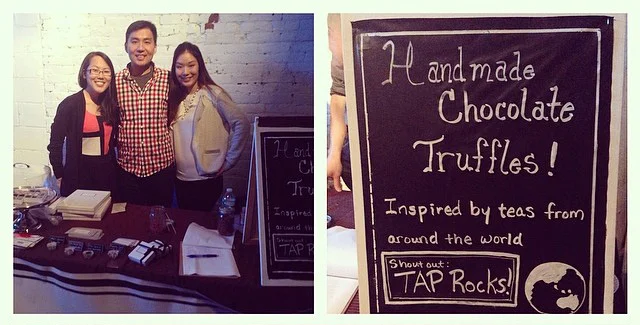 Hand
Ch
Tru
Inspired
around
Shout out:
TAP
Handmade
Chocolate
Truffles!
Inspired by teas from
around the world
Shout out:
TAP Rocks!